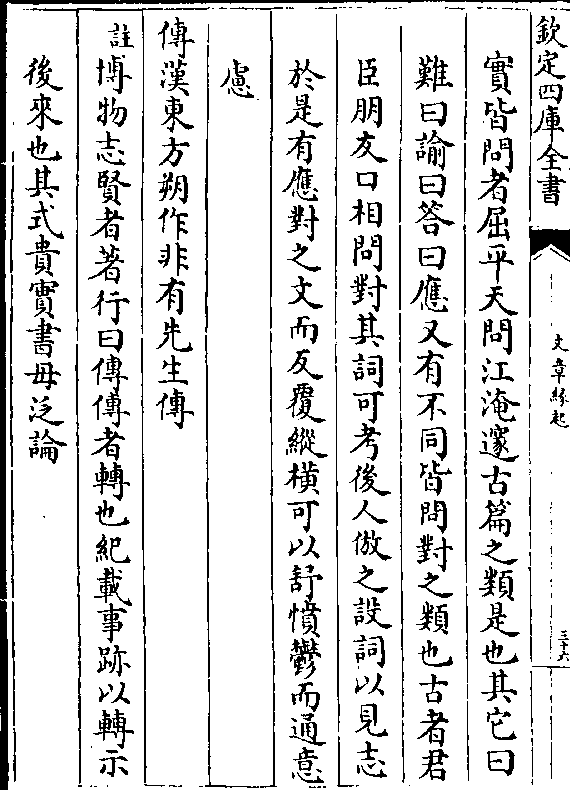 欽定四庫全書
文章緣起
三十六
實皆問者屈平天問江淹邃古篇之類是也其它曰
難曰諭曰答曰應又有不同皆問對之類也古者君
臣朋友口相問對其詞可考後人倣之設詞以見志
於是有應對之文而反覆縱橫可以舒憤鬱而通意
慮
傳漢東方朔作非有先生傳
註博物志賢者著行曰傳傳者轉也紀載事跡以轉示
後來也其式貴實書毋泛論